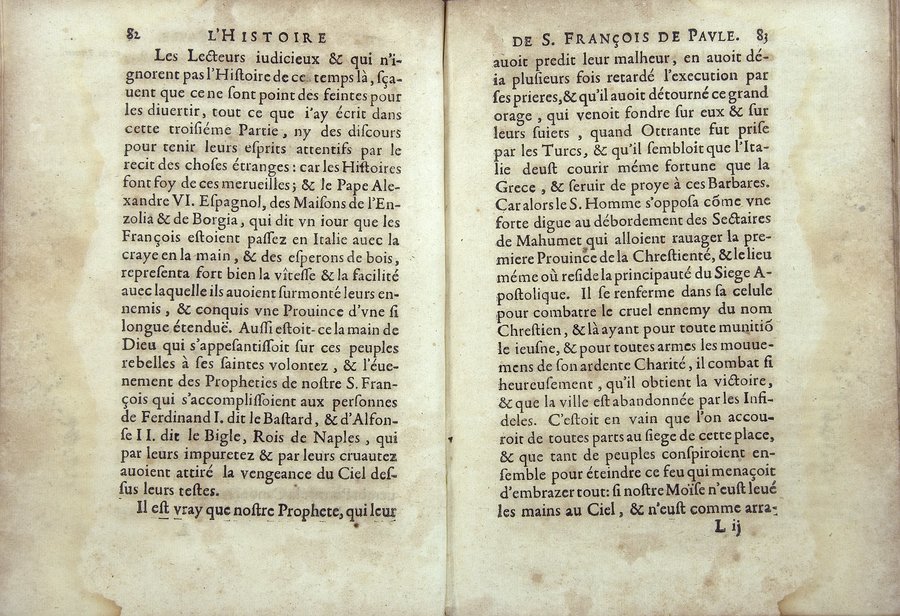 82 L'HISTOIRE
Les Lecteurs iudicieux & qui n'i-
gnorent pas l'Histoire de ce temps là, sça-
uent que ce ne sont point des feintes pour
les diuertir, tout ce que i'ay écrit dans
cette troisiéme Partie, ny des discours
pour tenir leurs esprits attentifs par le
recit des choses étranges : car les Histoires
font foy de ces merueilles; & le Pape Ale-
xandre VI. Espagnol, des Maisons de l'En-
zolia & de Borgia, qui dit vn iour que les
François estoient passez en Italie auec la
craye en la main, & des esperons de bois,
representa fort bien la vîtesse & la facilité
auec laquelle ils auoient surmonté leurs en-
nemis, & conquis vne Prouince d'vne si
longue étenduë. Aussi estoit-ce la main de
Dieu qui s'appesantissoit sur ces peuples
rebelles à ses saintes volontez, & l'éue-
nement des Propheties de nostre S. Fran-
çois qui s'accomplissoient aux personnes
de Ferdinand I. dit le Bastard, & d'Alfon-
se II. dit le Bigle, Rois de Naples, qui
par leurs impuretez & par leurs cruautez
auoient attiré la vengeance du Ciel des-
sus leurs testes.
Il est vray que nostre Prophete, qui leur
DE S. FRANÇOIS DE PAVLE. 83
auoit predit leur malheur, en auoit dé-
ia plusieurs fois retardé l'execution par
ses prieres, & qu'il auoit détourné ce grand
orage, qui venoit fondre sur eux & sur
leurs suiets, quand Ottrante fut prise
par les Turcs, & qu'il sembloit que l'Ita-
lie deust courir méme fortune que la
Grece, & seruir de proye à ces Barbares.
Car alors le S. Homme s'opposa cõme vne
forte digue au débordement des Sectaires
de Mahumet qui alloient rauager la pre-
miere Prouince de la Chrestienté, & le lieu
méme où reside la principauté du Siege A-
postolique. Il se renferme dans sa celule
pour combatre le cruel ennemy du nom
Chrestien, & là ayant pour toute munitiõ
le ieusne, & pour toutes armes les mouue-
mens de son ardente Charité, il combat si
heureusement, qu'il obtient la victoire,
& que la ville est abandonnée par les Infi-
deles. C'estoit en vain que l'on accou-
roit de toutes parts au siege de cette place,
& que tant de peuples conspiroient en-
semble pour éteindre ce feu qui menaçoit
d'embrazer tout: si nostre Moïse n'eust leué
les mains au Ciel, & n'eust comme arra-
L ij